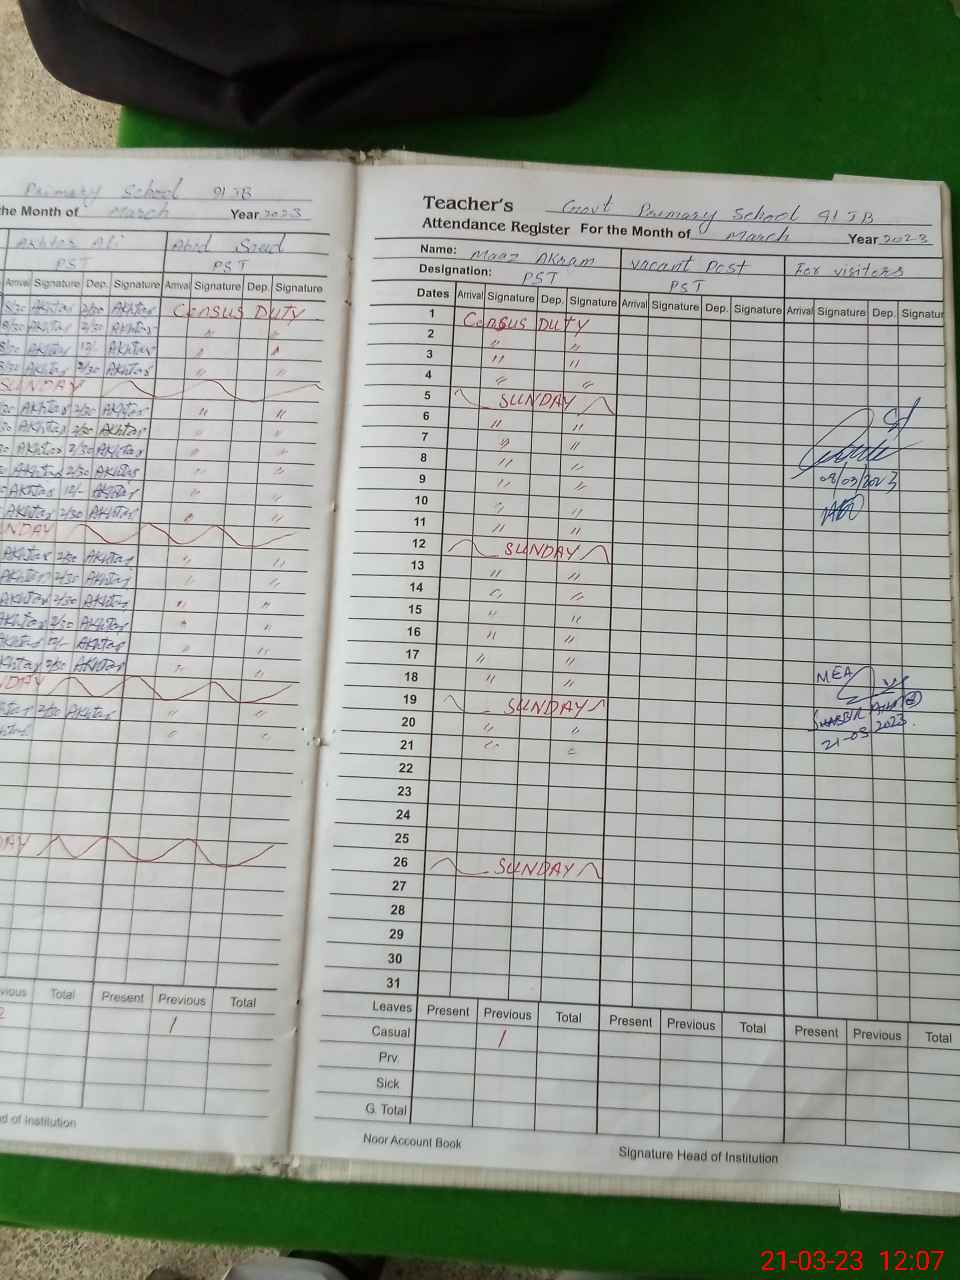 Primary School 91 JB
the Month of March Year 2023
Akhtar Ali Abid Saeed
PST PST
Arrival Signature Dep. Signature Arrival Signature Dep. Signature
8/30 Akhtar 2/30 Akhtar Census Duty
8/30 Akhtar 2/30 Akhtar " "
8/30 Akhtar 12/- Akhtar " "
8/30 Akhtar 2/30 Akhtar " "
SUNDAY
Akhtar 2/30 Akhtar " "
Akhtar 2/30 Akhtar " "
Akhtar 2/30 Akhtar " "
Akhtar 2/30 Akhtar " "
Akhtar 12/- Akhtar " "
Akhtar 2/30 Akhtar " "
NDAY
Akhtar 2/30 Akhtar " "
Akhtar 2/30 Akhtar " "
Akhtar 2/30 Akhtar " "
Akhtar 2/30 Akhtar " "
Akhtar 12/- Akhtar " "
Akhtar 2/30 Akhtar " "
NDAY
2/30 Akhtar " "
" "
DAY
vious Total Present Previous Total
2 1
d of Institution
Teacher's Govt Primary School 91 JB
Attendance Register For the Month of March Year 2023
Name: Maaz Akram Vacant Post For visitors
Designation: PST PST
Dates Arrival Signature Dep. Signature Arrival Signature Dep. Signature Arrival Signature Dep. Signatur
1 Census Duty
2 " "
3 " "
4 " "
5 SUNDAY
6 " "
7 " "
8 " "
9 " " 08/03/2023
10 " "
11 " "
12 SUNDAY
13 " "
14 " "
15 " "
16 " "
17 " "
18 " " MEA
19 SUNDAY
20 " " 21-03-2023.
21 " "
22
23
24
25
26 SUNDAY
27
28
29
30
31
Leaves Present Previous Total Present Previous Total Present Previous Total
Casual 1
Prv.
Sick
G. Total
Noor Account Book
Signature Head of Institution
21-03-23 12:07